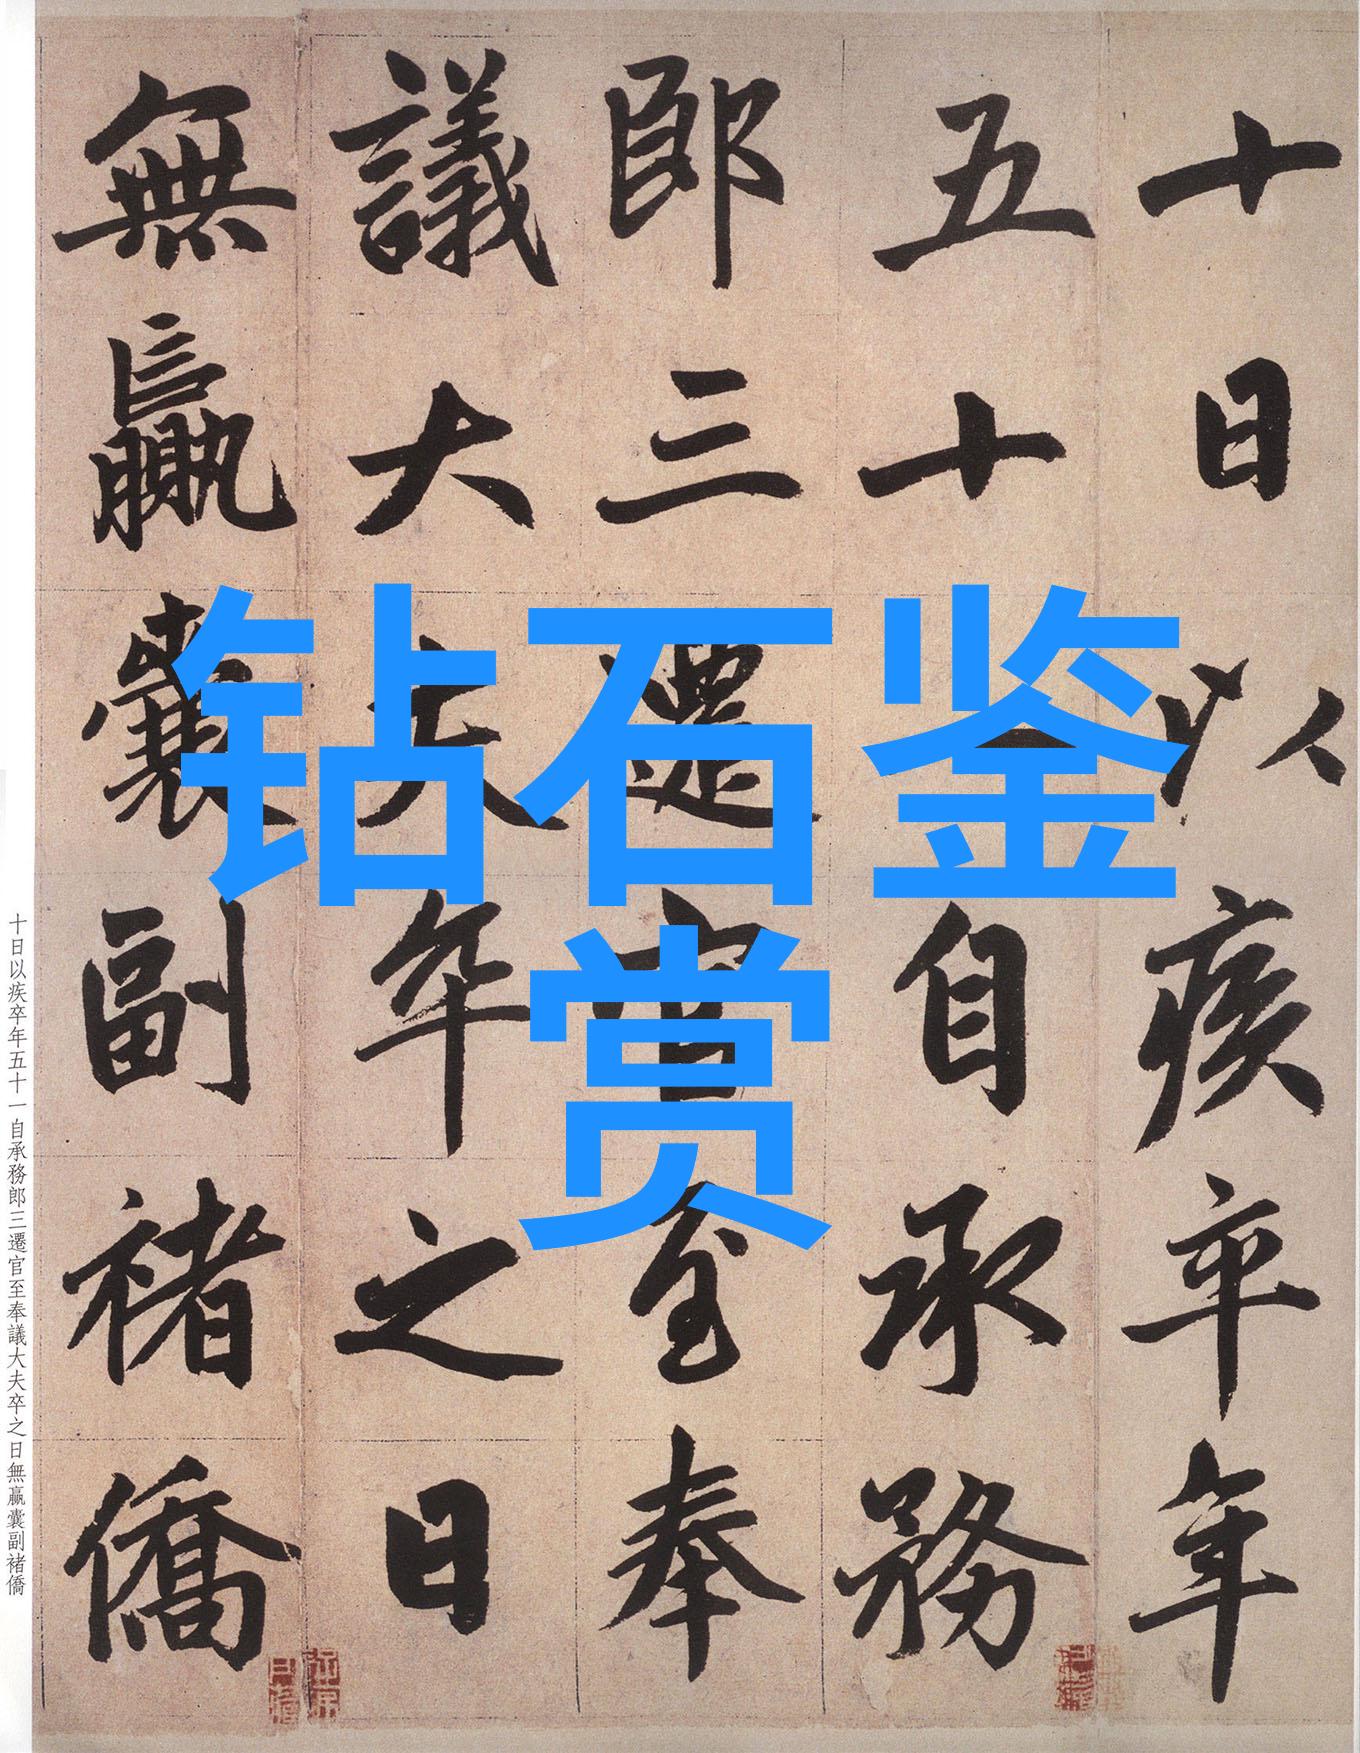 十日以疾卒年
五十一自承務
郎三遷官至奉
議大夫卒之日
無贏囊副褚僑
钻石鉴
赏
十日以疾卒年五十一自承務郎三遷官至奉議大夫卒之日無贏囊副褚僑